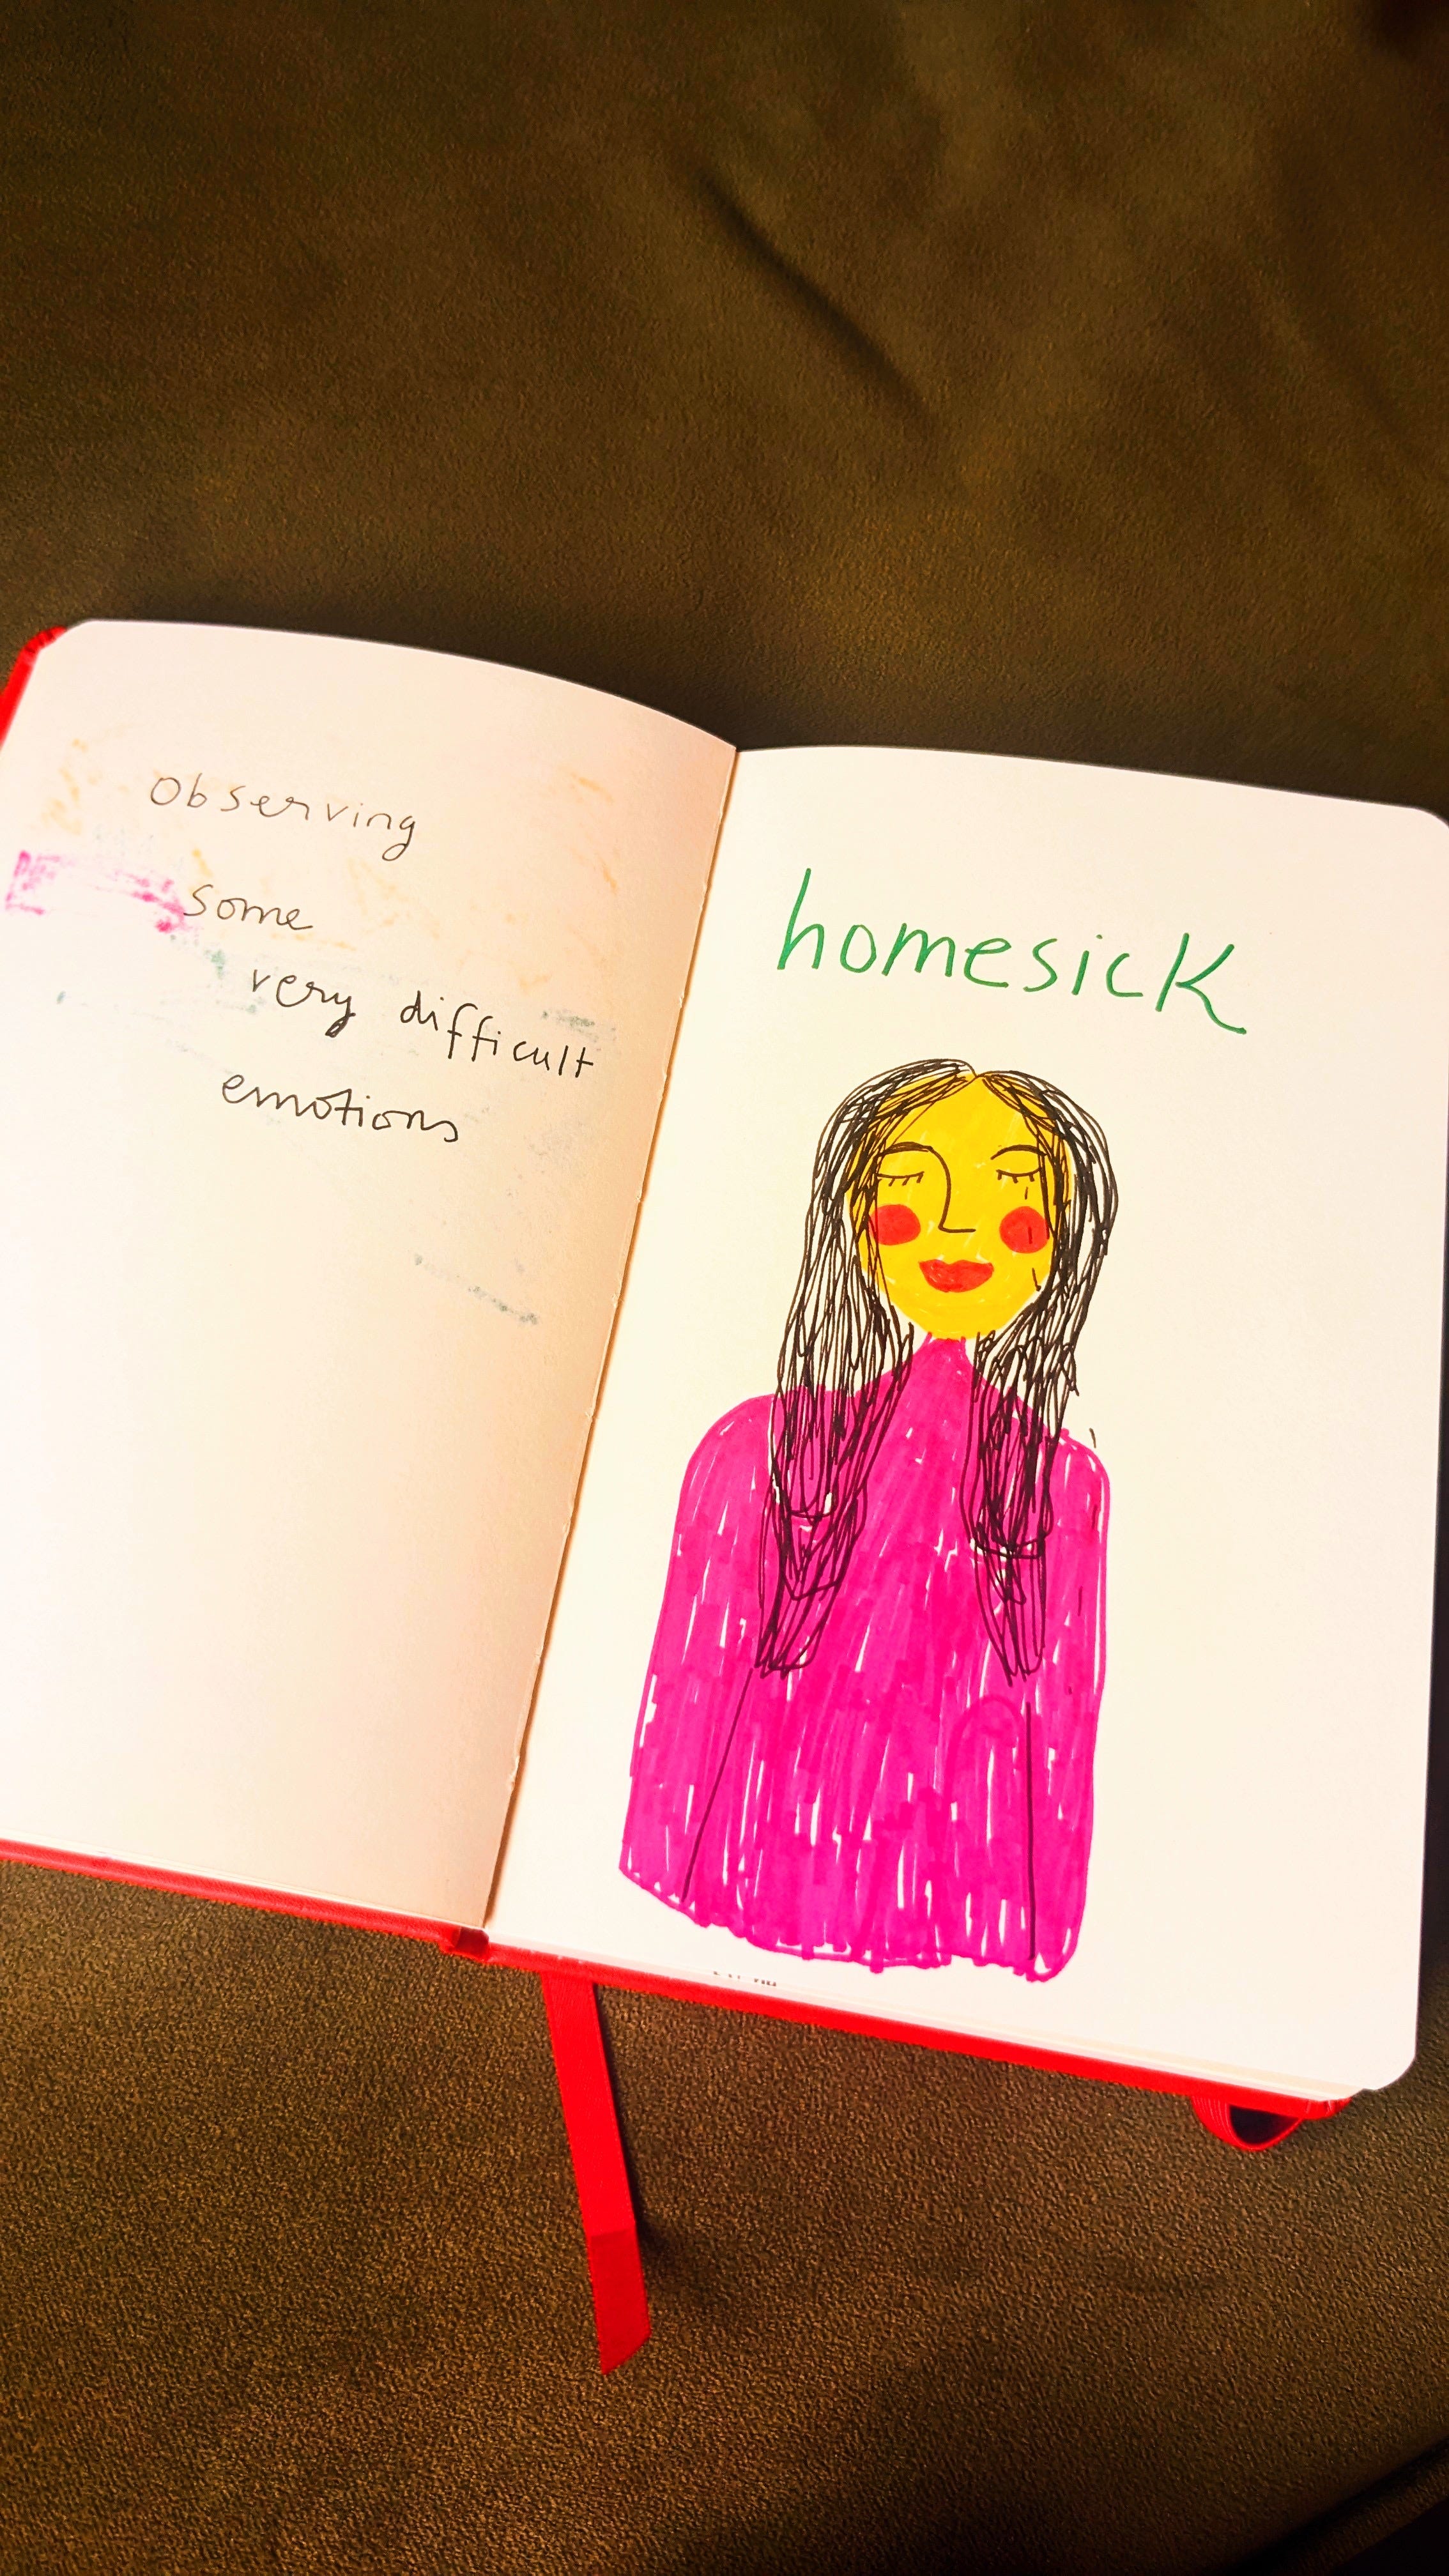 Observing
some
very difficult
emotions
homesick